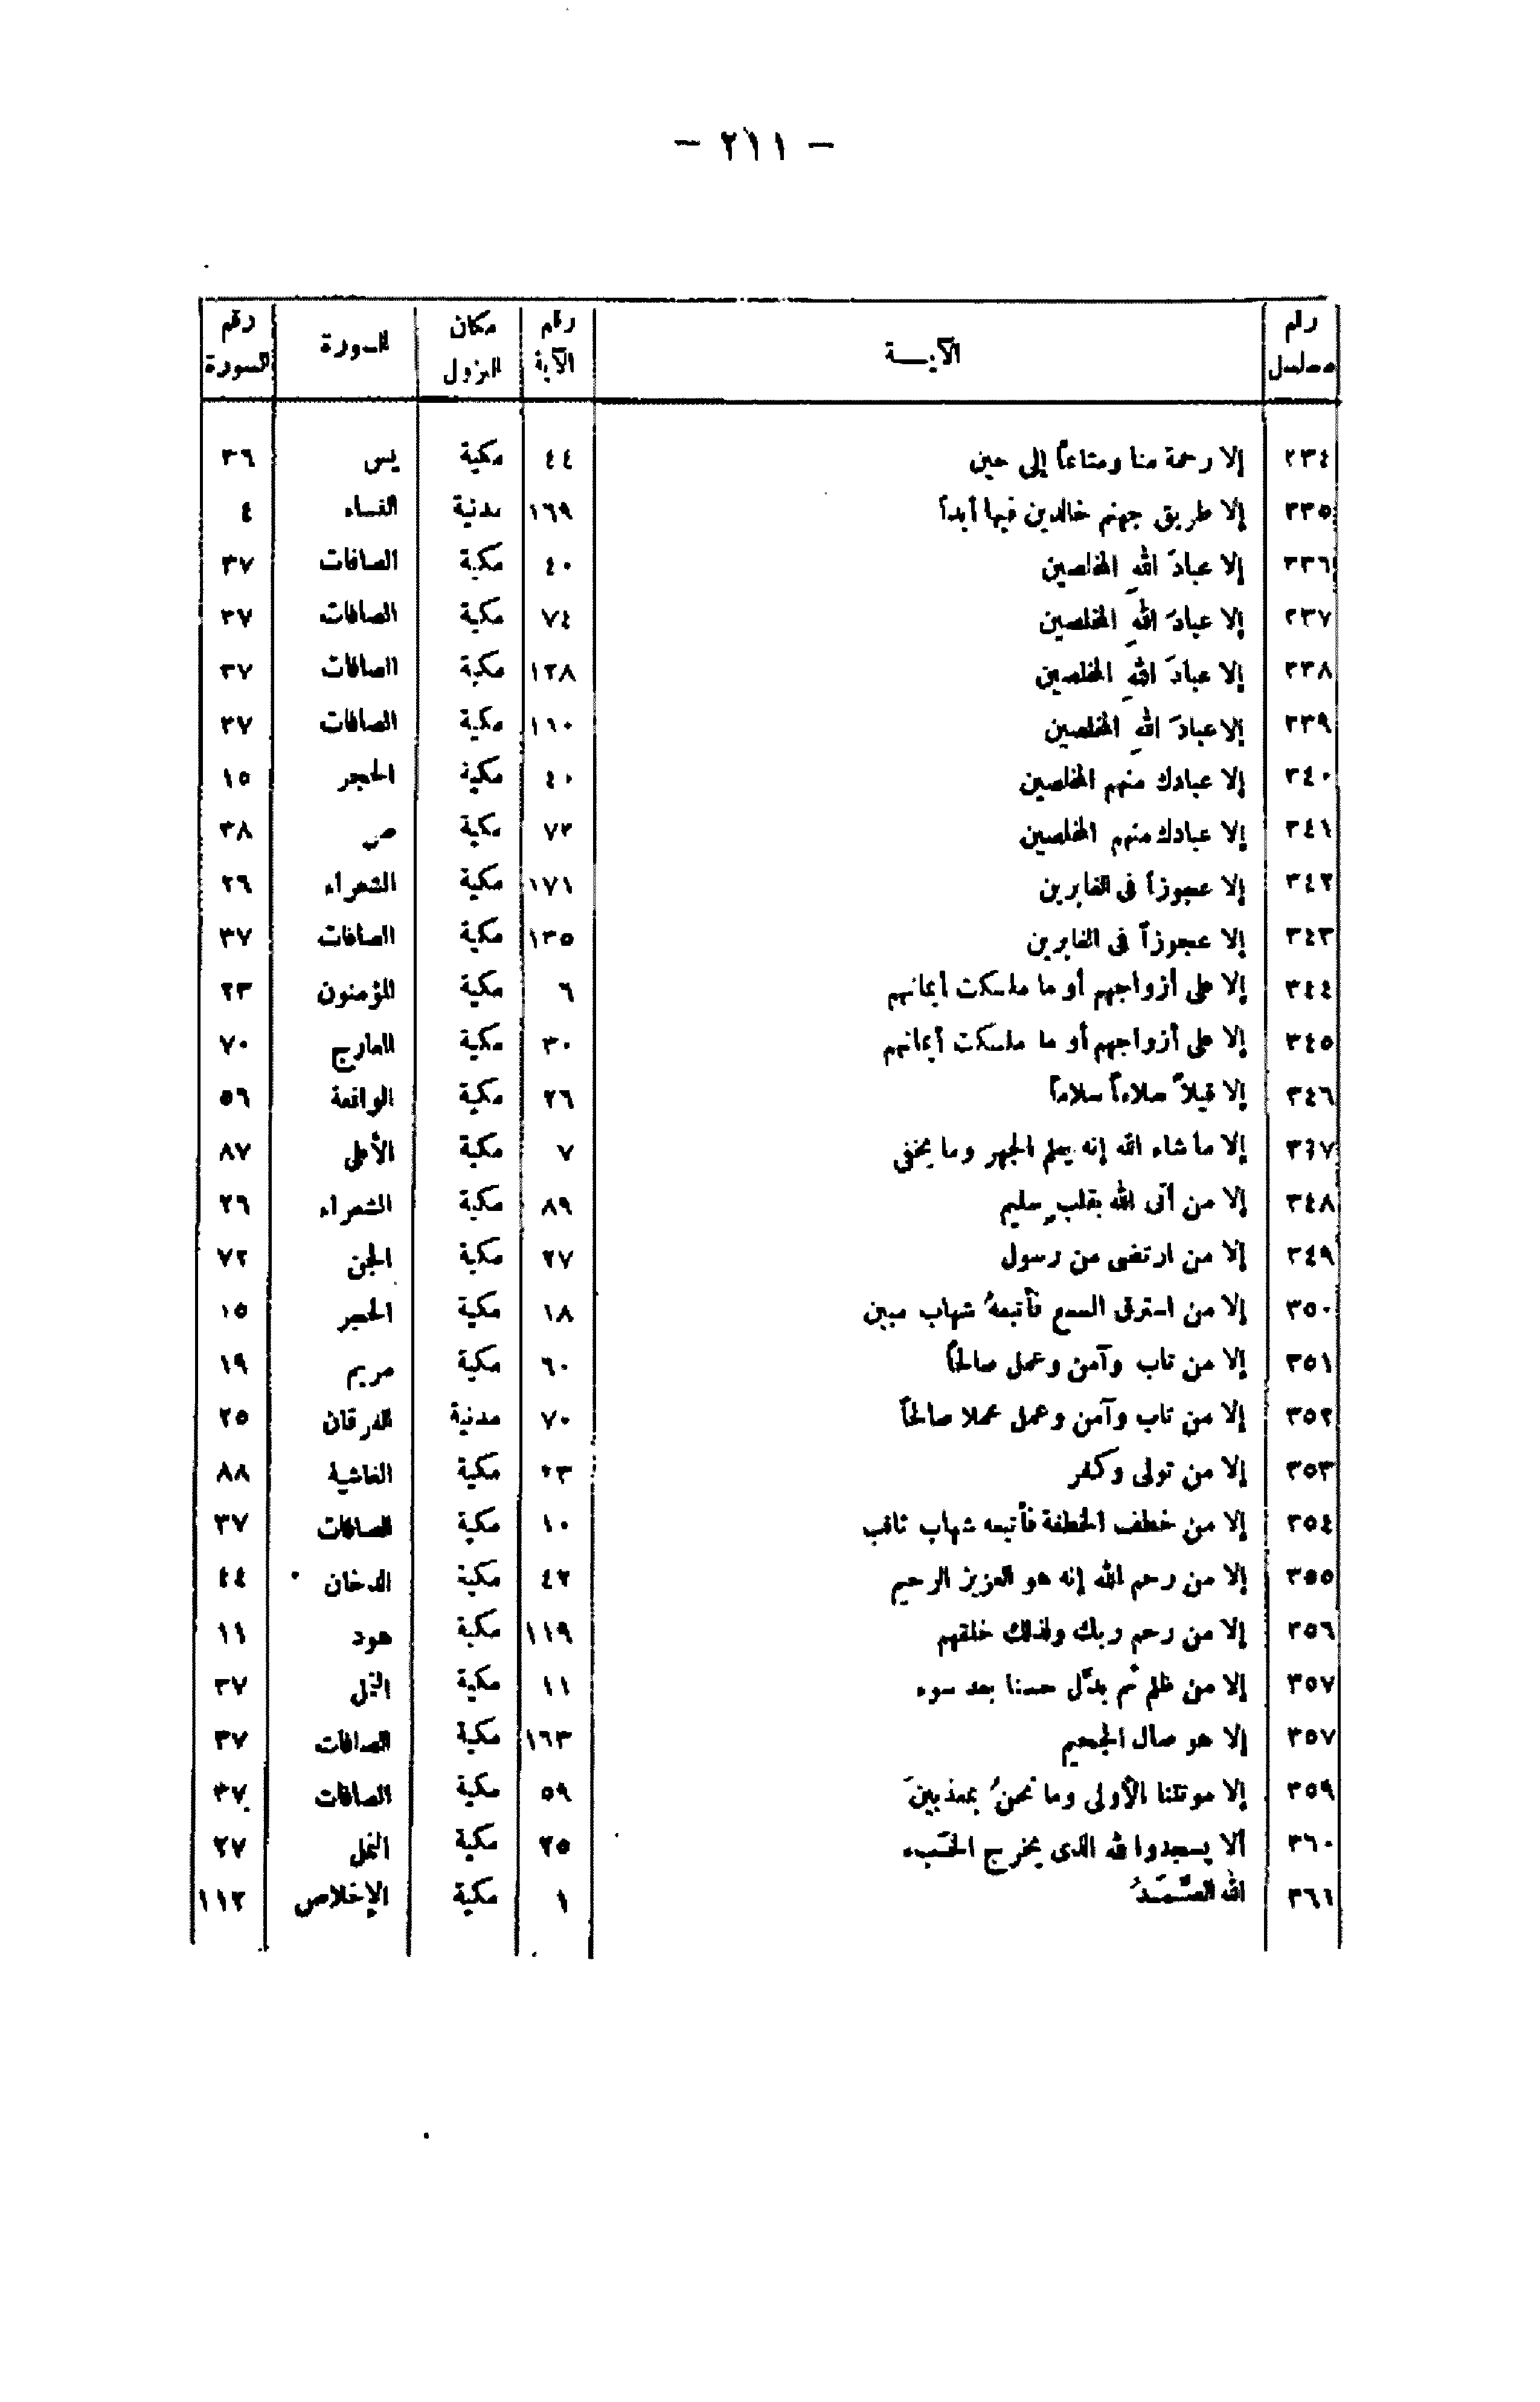 — ٢١١ —
رقم مسلسل | الآيـــة | رقم الآية | مكان النزول | السورة | رقم السورة
٣٣٤ | إلا رحمة منا ومتاعاً إلى حين | ٤٤ | مكية | يس | ٣٦
٣٣٥ | إلا طريق جهنم خالدين فيها أبداً | ١٦٩ | مدنية | النساء | ٤
٣٣٦ | إلا عبادَ اللهِ المخلصين | ٤٠ | مكية | الصافات | ٣٧
٣٣٧ | إلا عبادَ اللهِ المخلصين | ٧٤ | مكية | الصافات | ٣٧
٣٣٨ | إلا عبادَ اللهِ المخلصين | ١٢٨ | مكية | الصافات | ٣٧
٣٣٩ | إلا عبادَ اللهِ المخلصين | ١٦٠ | مكية | الصافات | ٣٧
٣٤٠ | إلا عبادك منهم المخلصين | ٤٠ | مكية | الحجر | ١٥
٣٤١ | إلا عبادك منهم المخلصين | ٧٣ | مكية | ص | ٣٨
٣٤٢ | إلا عجوزاً فى الغابرين | ١٧١ | مكية | الشعراء | ٢٦
٣٤٣ | إلا عجوزاً فى الغابرين | ١٣٥ | مكية | الصافات | ٣٧
٣٤٤ | إلا على أزواجهم أو ما ملكت أيمانهم | ٦ | مكية | المؤمنون | ٢٣
٣٤٥ | إلا على أزواجهم أو ما ملكت أيمانهم | ٣٠ | مكية | المعارج | ٧٠
٣٤٦ | إلا قيلاً سلاماً سلاماً | ٢٦ | مكية | الواقعة | ٥٦
٣٤٧ | إلا ما شاء الله إنه يعلم الجهر وما يخفى | ٧ | مكية | الأعلى | ٨٧
٣٤٨ | إلا من أتى الله بقلبٍ سليم | ٨٩ | مكية | الشعراء | ٢٦
٣٤٩ | إلا من ارتضى من رسول | ٢٧ | مكية | الجن | ٧٢
٣٥٠ | إلا من استرق السمع فأتبعهُ شهاب مبين | ١٨ | مكية | الحجر | ١٥
٣٥١ | إلا من تاب وآمن وعمل صالحاً | ٦٠ | مكية | مريم | ١٩
٣٥٢ | إلا من تاب وآمن وعمل عملا صالحاً | ٧٠ | مدنية | الفرقان | ٢٥
٣٥٣ | إلا من تولى وكفر | ٢٣ | مكية | الغاشية | ٨٨
٣٥٤ | إلا من خطف الخطفة فأتبعه شهاب ثاقب | ١٠ | مكية | الصافات | ٣٧
٣٥٥ | إلا من رحم الله إنه هو العزيز الرحيم | ٤٢ | مكية | الدخان | ٤٤
٣٥٦ | إلا من رحم ربك ولذلك خلقهم | ١١٩ | مكية | هود | ١١
٣٥٧ | إلا من ظلم ثم بدّل حسنا بعد سوء | ١١ | مكية | النمل | ٢٧
٣٥٧ | إلا هو صال الجحيم | ١٦٣ | مكية | الصافات | ٣٧
٣٥٩ | إلا موتتنا الأولى وما نحنُ بمعذبينَ | ٥٩ | مكية | الصافات | ٣٧
٣٦٠ | ألا يسجدوا لله الذى يخرج الخبء | ٢٥ | مكية | النمل | ٢٧
٣٦١ | الله الصَّمَدُ | ١ | مكية | الإخلاص | ١١٢